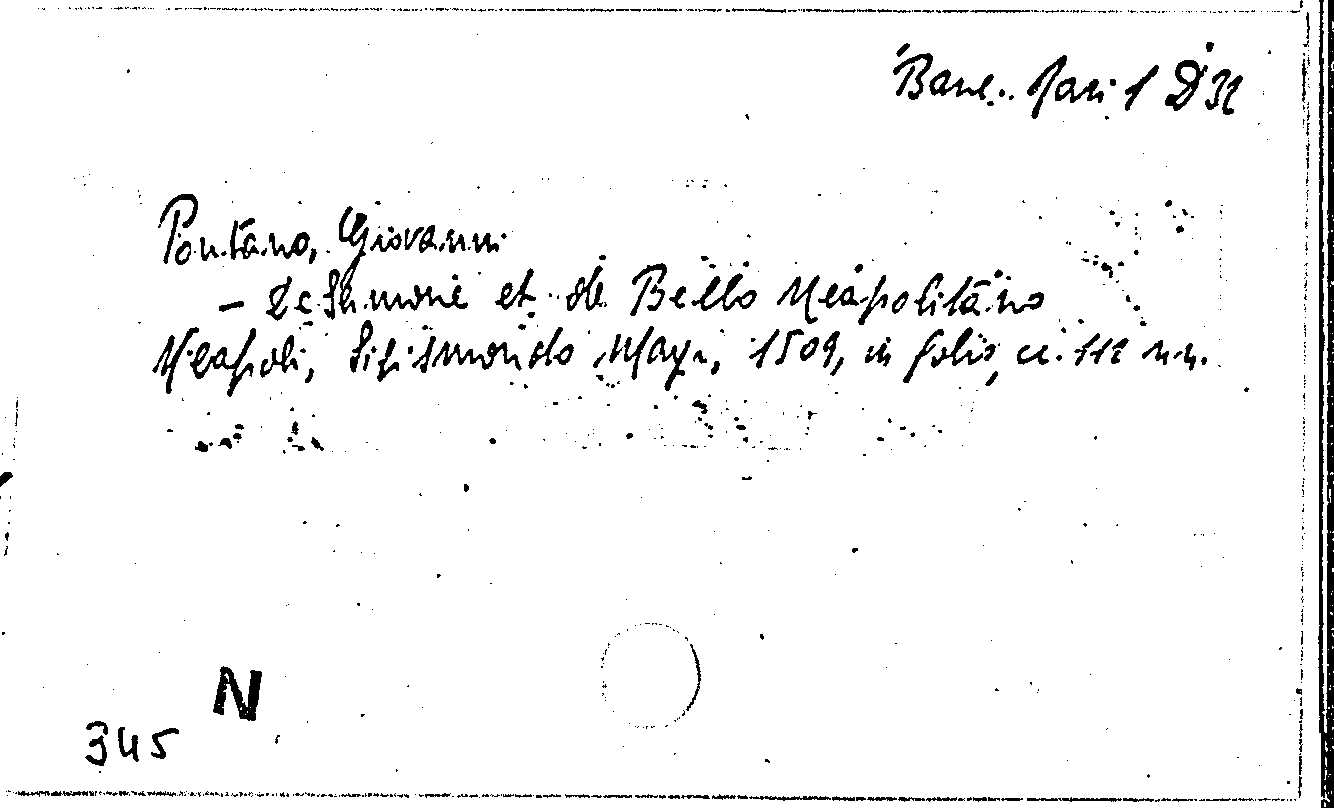 Banc. Rari 1 D 32
Pontano, Giovanni
– De Sermone et de Bello Neapolitano
Neapoli, Sigismondo Mayr, 1509, in folio, cc. 112 n.n.
N
345